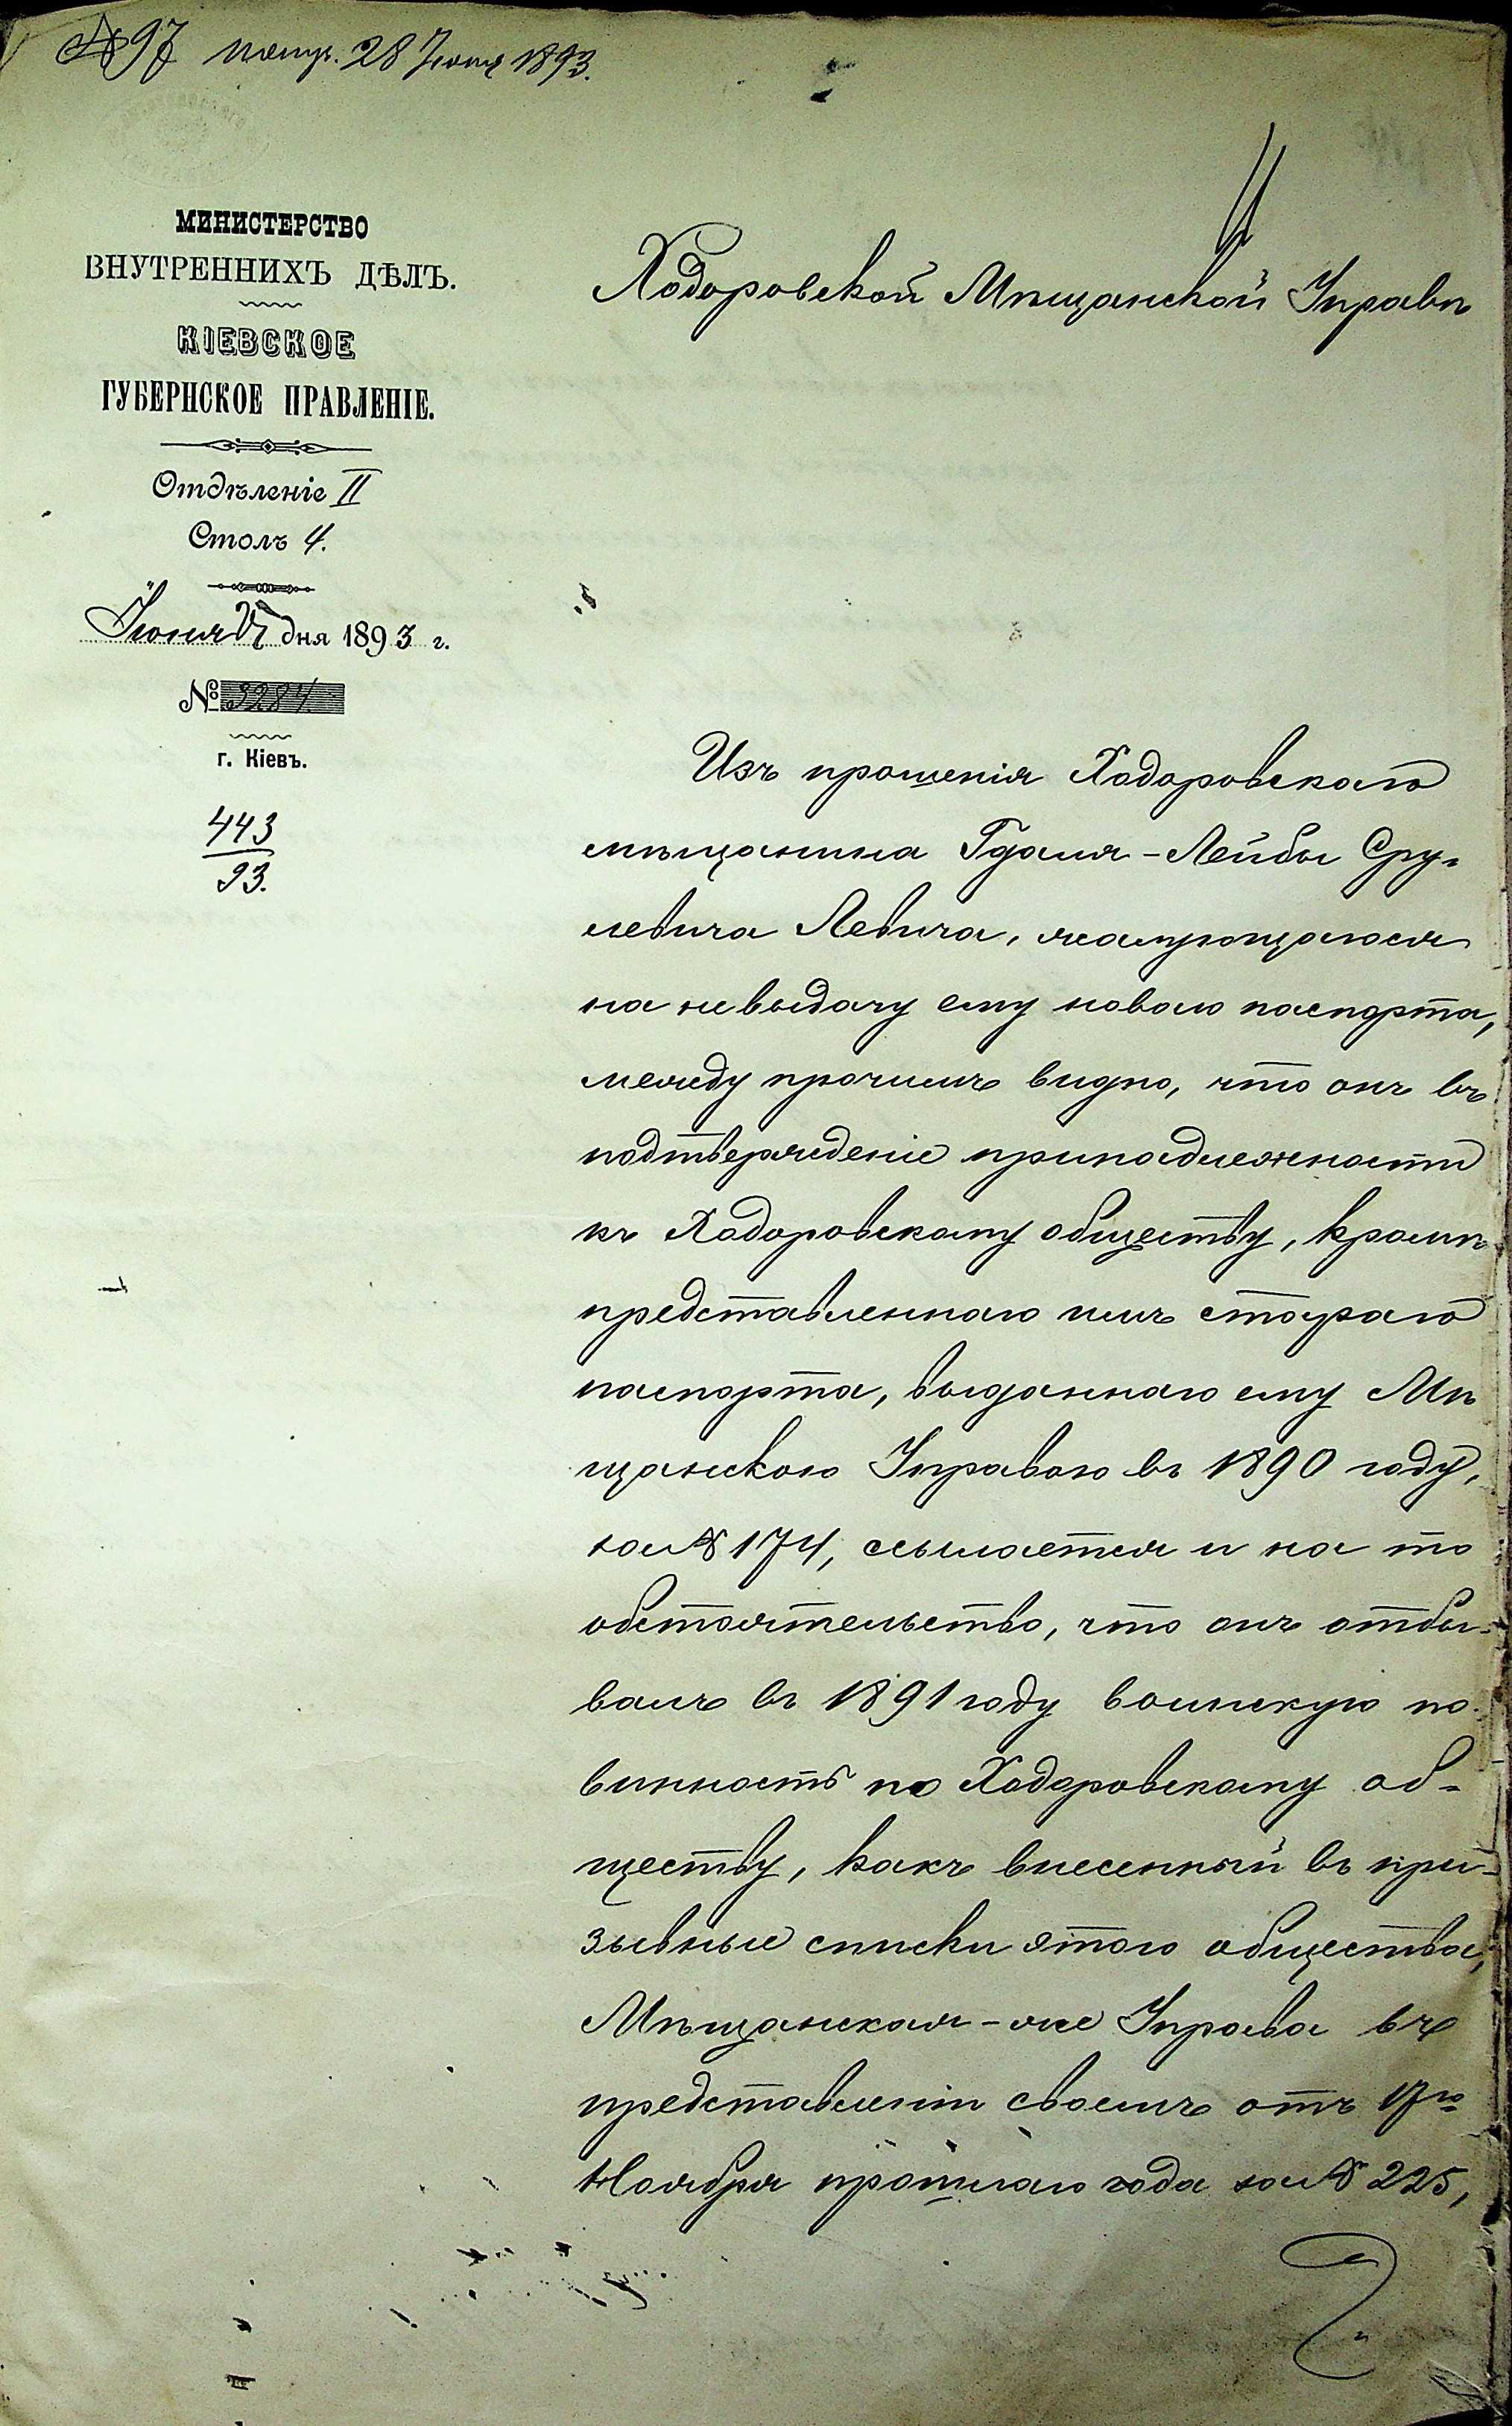 № 97 получ. 28 Іюня 1893.
МИНИСТЕРСТВО
ВНУТРЕННИХЪ ДѢЛЪ.
КІЕВСКОЕ
ГУБЕРНСКОЕ ПРАВЛЕНІЕ.
Отдѣленіе II
Столъ 4.
Іюня дня 1893 г.
№ 3284
г. Кіевъ.
443
93.
Ходоровской Мѣщанской Управѣ
Изъ прошенія Ходоровскаго
мѣщанина Гдаля-Лейбы Сру-
левича Левича, жалующагося
на невыдачу ему новаго паспорта,
между прочимъ видно, что онъ въ
подтвержденіе принадлежности
къ Ходоровскому обществу, кромѣ
представленнаго имъ стараго
паспорта, выданнаго ему Мѣ
щанскою Управою въ 1890 году,
за № 174, ссылается и на то
обстоятельство, что онъ отбы-
валъ въ 1891 году воинскую по-
винность по Ходоровскому об-
ществу, какъ внесенный въ при-
зывные списки этого общества,
Мѣщанская-же Управа въ
представленіи своемъ отъ 17го
Ноября прошлаго года за № 225,